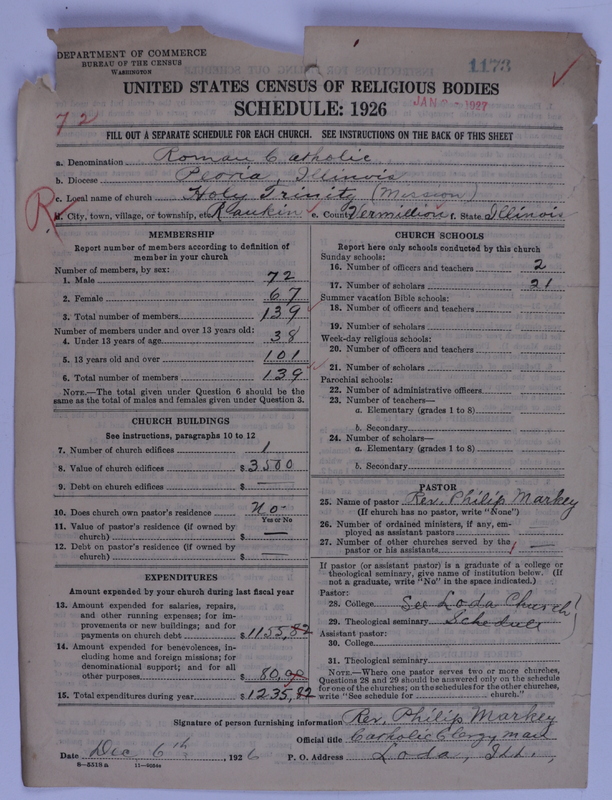 DEPARTMENT OF COMMERCE
BUREAU OF THE CENSUS
WASHINGTON
1173
UNITED STATES CENSUS OF RELIGIOUS BODIES
SCHEDULE: 1926
JAN - 1927
72
FILL OUT A SEPARATE SCHEDULE FOR EACH CHURCH. SEE INSTRUCTIONS ON THE BACK OF THIS SHEET
a. Denomination Roman Catholic
b. Diocese Peoria, Illinois
c. Local name of church Holy Trinity (Mission)
R
d. City, town, village, or township, etc. Rankin e. County Vermillion f. State Illinois
MEMBERSHIP
Report number of members according to definition of
member in your church
Number of members, by sex:
1. Male 72
2. Female 67
3. Total number of members 139
Number of members under and over 13 years old:
4. Under 13 years of age 38
5. 13 years old and over 101
6. Total number of members 139
NOTE.—The total given under Question 6 should be
same as the total of males and females given under Question 3.
CHURCH BUILDINGS
See instructions, paragraphs 10 to 12
7. Number of church edifices 1
8. Value of church edifices $ 3500
9. Debt on church edifices $ —
10. Does church own pastor's residence? No
Yes or No
11. Value of pastor's residence (if owned by
church) $ —
12. Debt on pastor's residence (if owned by
church) $ —
EXPENDITURES
Amount expended by your church during last fiscal year
13. Amount expended for salaries, repairs,
and other running expenses; for im-
provements or new buildings; and for
payments on church debt $ 1155,82
14. Amount expended for benevolences, in-
cluding home and foreign missions; for
denominational support; and for all
other purposes $ 80,00
15. Total expenditures during year $ 1235,82
CHURCH SCHOOLS
Report here only schools conducted by this church
Sunday schools:
16. Number of officers and teachers 2
17. Number of scholars 21
Summer vacation Bible schools:
18. Number of officers and teachers
19. Number of scholars
Week-day religious schools:
20. Number of officers and teachers
21. Number of scholars
Parochial schools:
22. Number of administrative officers
23. Number of teachers—
a. Elementary (grades 1 to 8)
b. Secondary
24. Number of scholars—
a. Elementary (grades 1 to 8)
b. Secondary
PASTOR
25. Name of pastor Rev. Philip Markey
(If church has no pastor, write "None")
26. Number of ordained ministers, if any, em-
ployed as assistant pastors
27. Number of other churches served by the
pastor or his assistants 1 —
If pastor (or assistant pastor) is a graduate of a college or
theological seminary, give name of institution below. (If
not a graduate, write "No" in the space indicated.)
Pastor:
28. College See Loda Church
29. Theological seminary Schedule
Assistant pastor:
30. College
31. Theological seminary
NOTE.—Where one pastor serves two or more churches,
Questions 28 and 29 should be answered only on the schedule
for one of the churches; on the schedules for the other churches,
write "See schedule for church."
Signature of person furnishing information Rev. Philip Markey
Official title Catholic Clergyman
Date Dec 6th, 1926 P. O. Address Loda, Ill.,
8—5518a